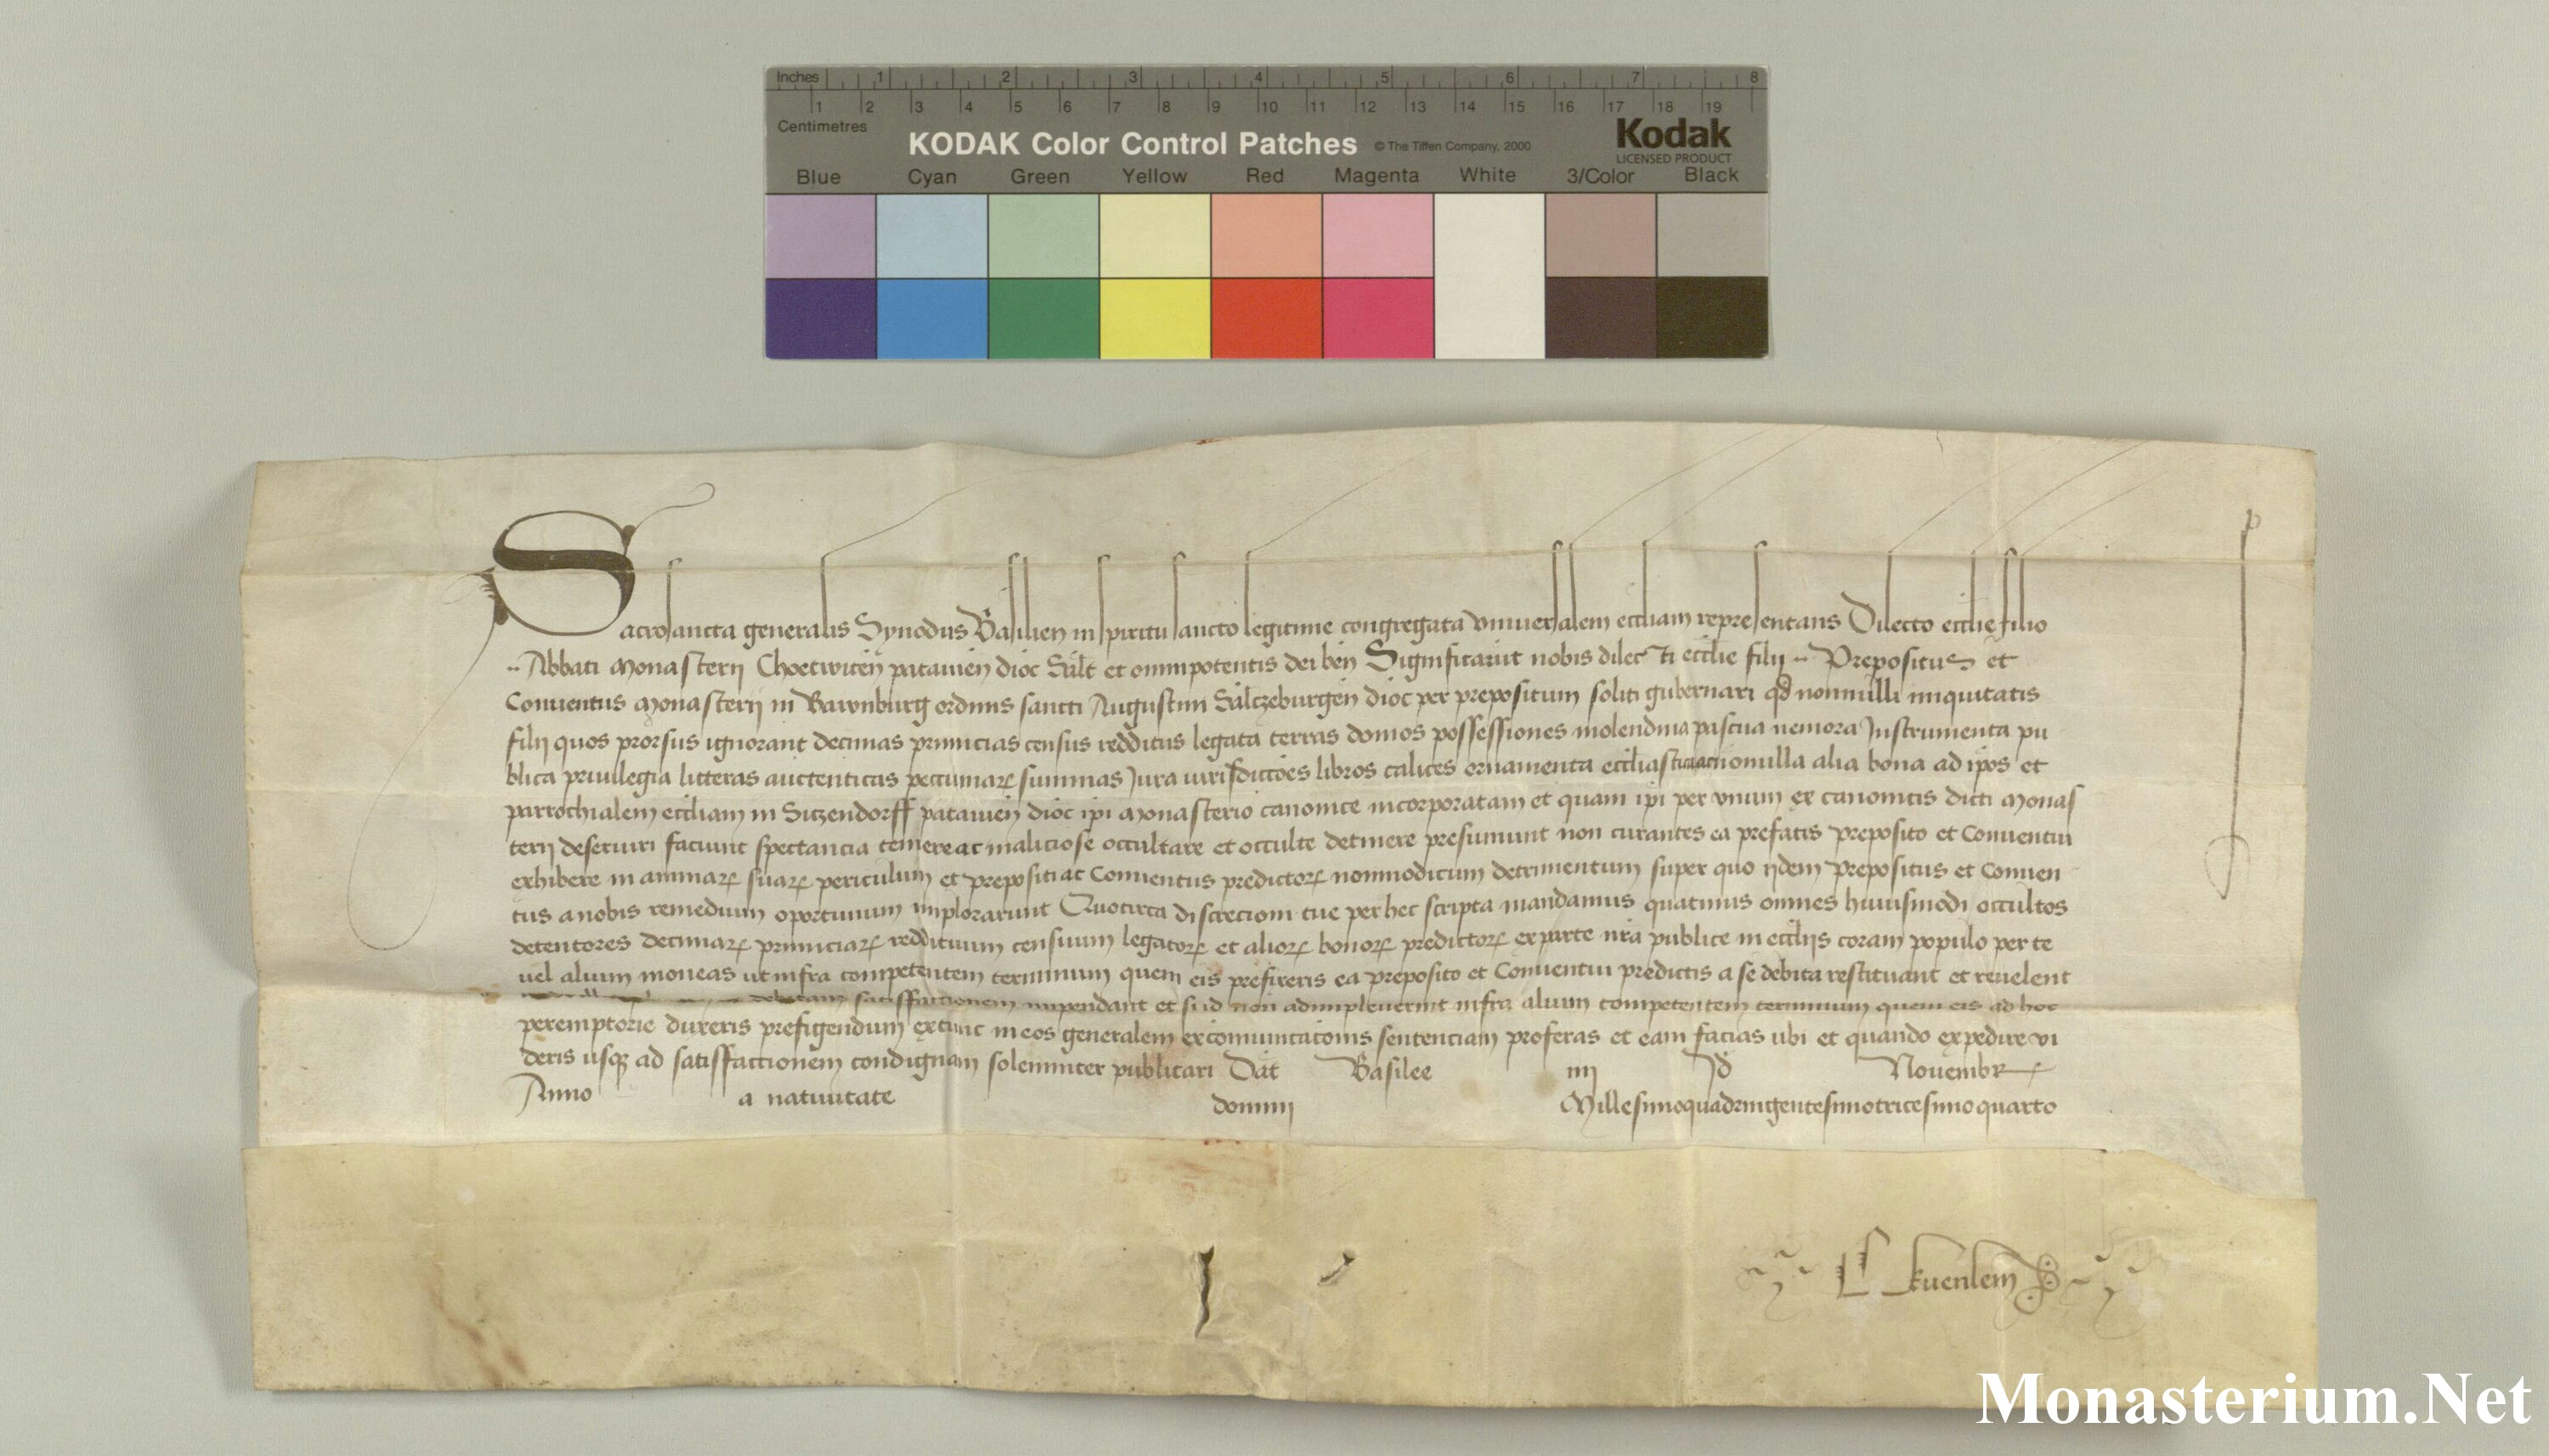 Inches 1 2 3 4 5 6 7 8
1 2 3 4 5 6 7 8 9 10 11 12 13 14 15 16 17 18 19
Centimetres
KODAK Color Control Patches © The Tiffen Company, 2000 Kodak
LICENSED PRODUCT
Blue Cyan Green Yellow Red Magenta White 3/Color Black
Sacrosancta generalis Synodus Basilien in spiritu sancto legitime congregata vniuersalem eccliam representans Dilecto ecclie filio
.. Abbati Monasterij Choetwicen patauien dioc Salt et omnipotentis dei ben Significarunt nobis dilecti ecclie filij .. Prepositus et
Conuentus Monasterij in Rawnburg ordinis sancti Augustini Salczeburgen dioc per prepositum soliti gubernari qd nonnulli iniquitatis
filij quos prorsus ignorant decimas primicias census redditus legata terras domos possessiones molendina pascua nemora Instrumenta pu
blica priuilegia litteras auctenticas peccuniarꝝ summas Jura iurisdictoes libros calices ornamenta eccliastica nonulla alia bona ad ipos et
parrochialem eccliam in Sitzendorff patauien dioc ipi Monasterio canonice incorporatam et quam ipi per vnum ex canonicis dicti Monas
terij deseruiri faciunt spectancia temere ac maliciose occultare et occulte detinere presumunt non curantes ea prefatis Preposito et Conuentui
exhibere in animarꝝ suarꝝ periculum et Prepositi ac Conuentus predictorꝝ nonmodicum detrimentum super quo ijdem Prepositus et Conuen
tus a nobis remedium oportunum implorarunt Quocirca discrecioni tue per hec scripta mandamus quatinus omnes huiusmodi occultos
detentores decimarꝝ primiciarꝝ reddituum censuum legatorꝝ et aliorꝝ bonorꝝ predictorꝝ ex parte nra publice in eccliis coram populo per te
uel alium moneas ut infra competentem terminum quem eis prefixeris ea Preposito et Conuentui predictis a se debita restituant et reuelent
debitam satisffactionem impendant et si id non adimpleuerint infra alium competentem terminum quem eis ad hoc
peremptorie duxeris prefigendum extunc in eos generalem excomunicacionis sentenciam proferas et eam facias ubi et quando expedire vi
deris usqꝫ ad satisffactionem condignam solemniter publicari Dat Basilee iiij Id Nouembr
Anno a natiuitate domini Millesimoquadringentesimotricesimoquarto
kuenlem
Monasterium.Net